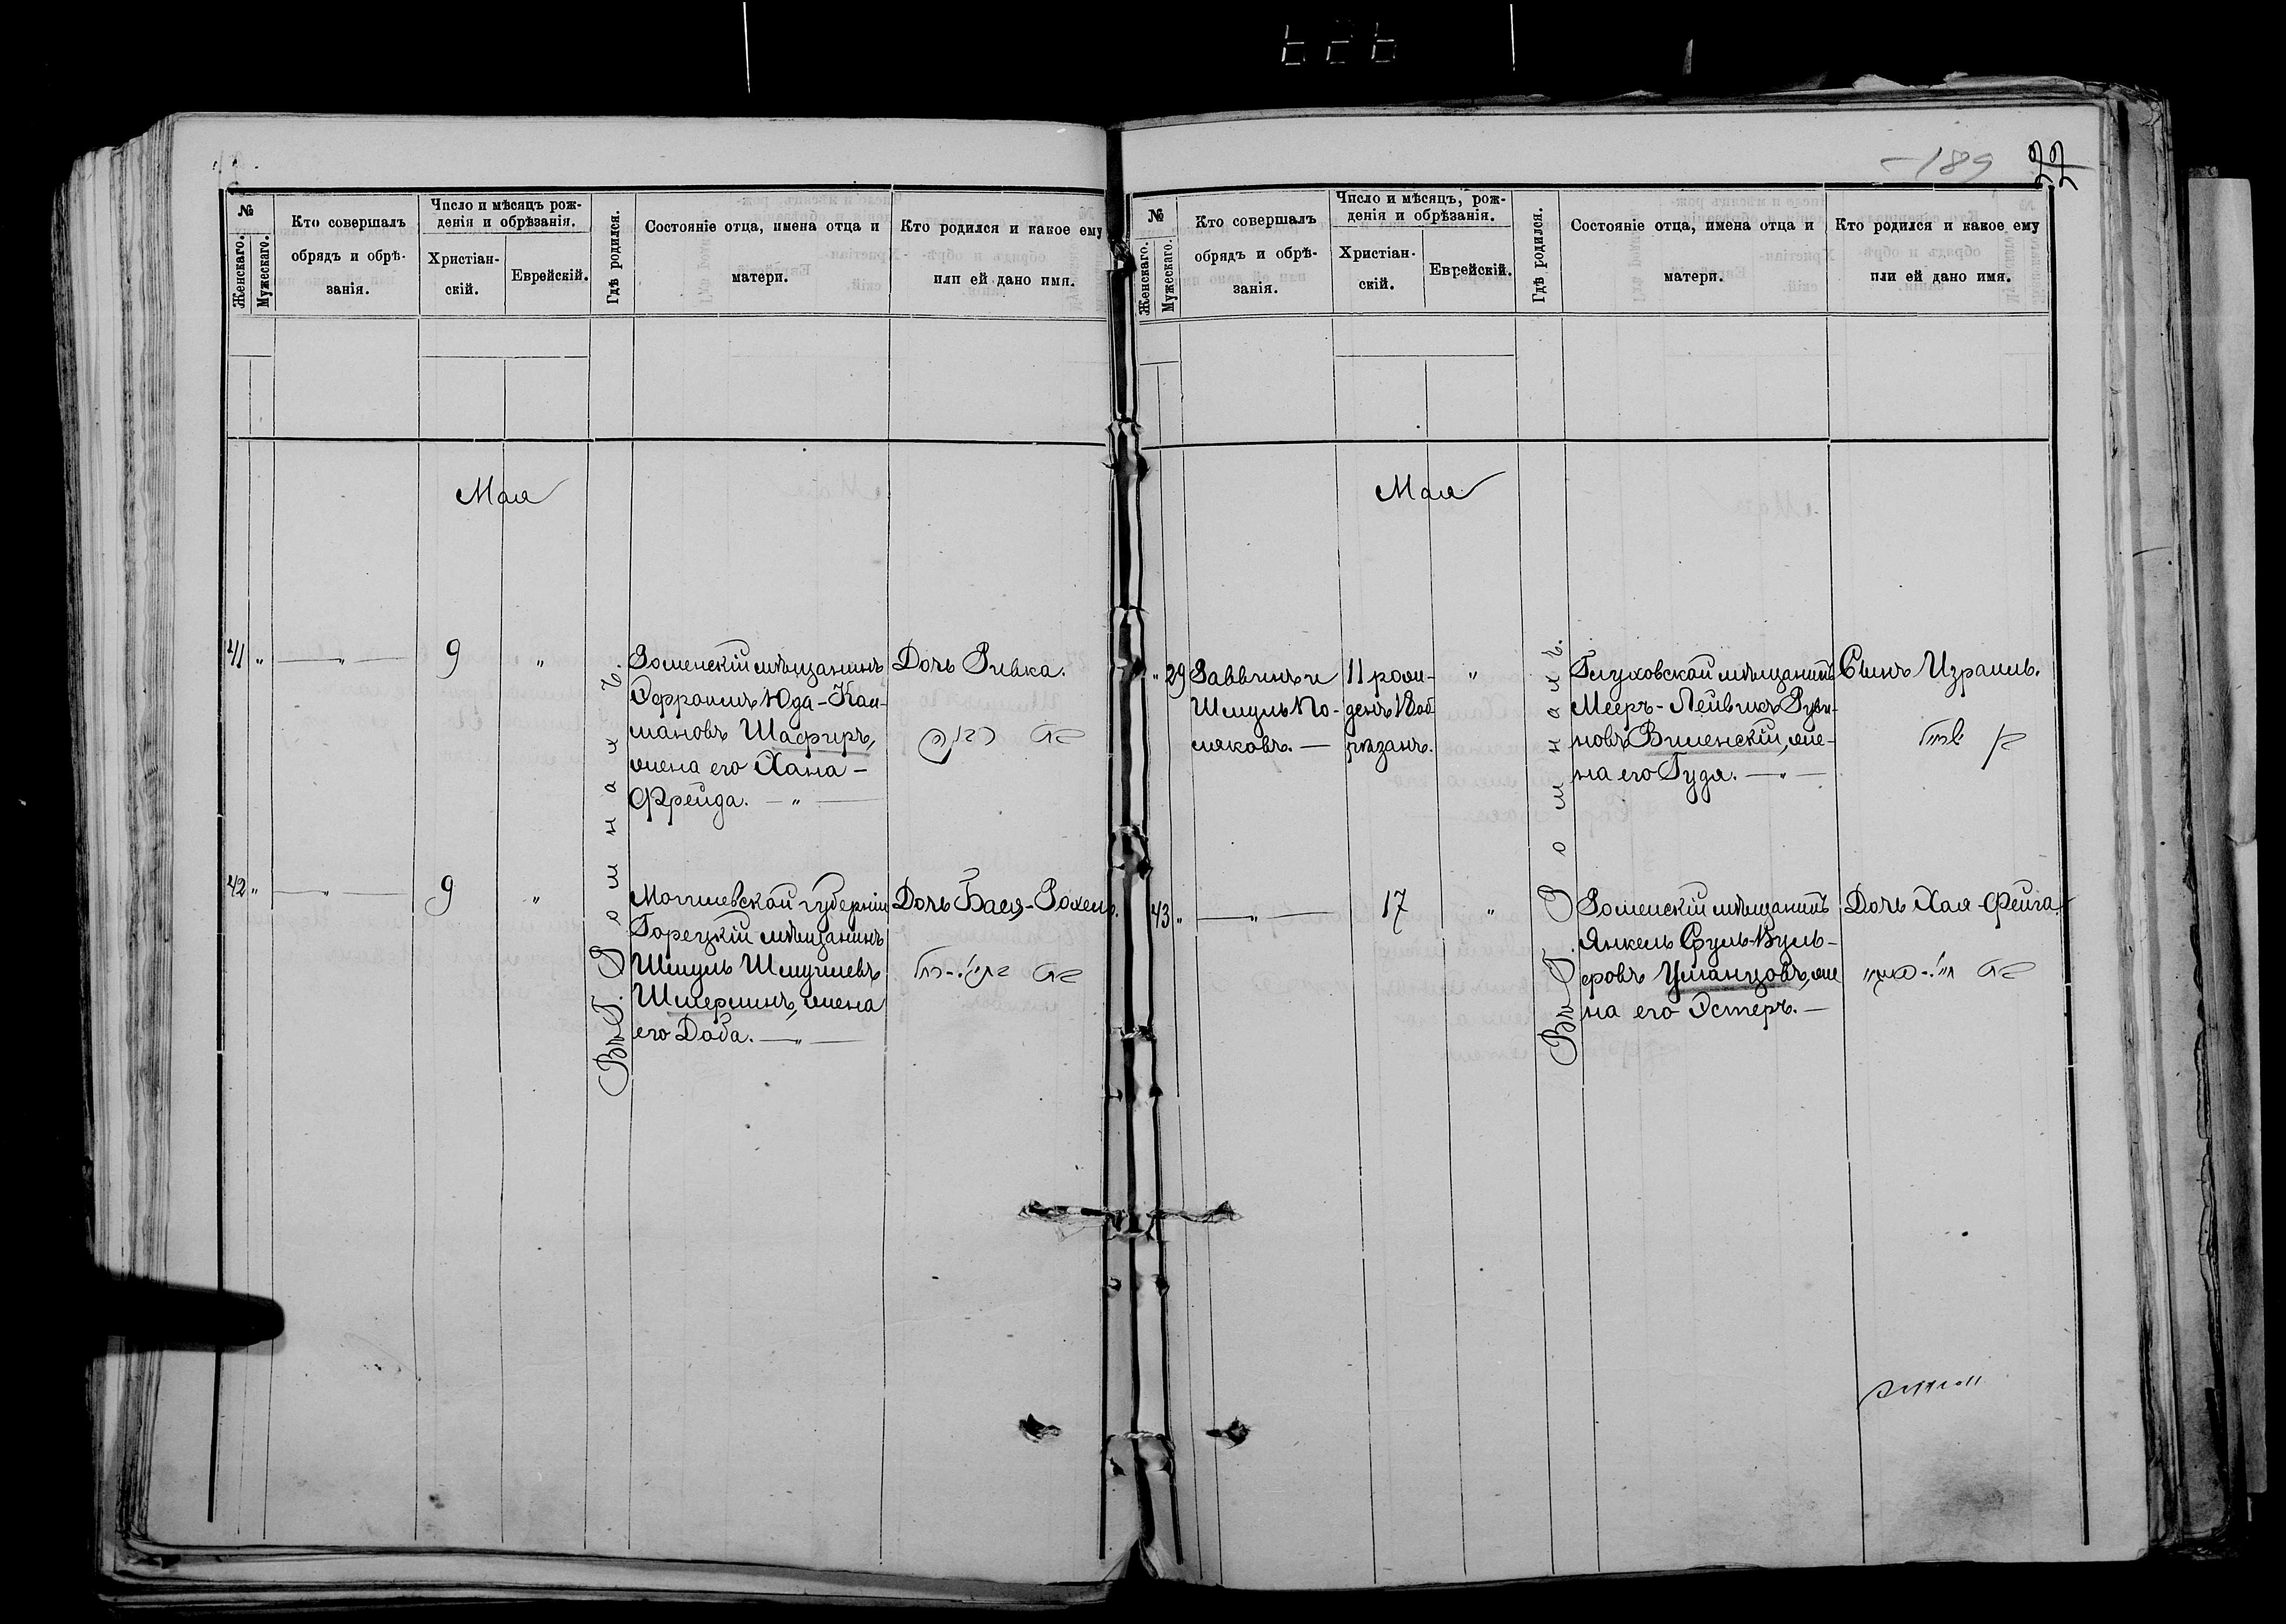 189
22
№
Женскаго.
Мужескаго.
Кто совершалъ
обрядъ и обрѣ-
занія.
Число и мѣсяцъ рож-
денія и обрѣзанія.
Христіан-
скій.
Еврейскій.
Гдѣ родился.
Состояніе отца, имена отца и
матери.
Кто родился и какое ему
или ей дано имя.
Мая
41 " — " — 9 "
Въ Г. Ромнахъ.
Роменскій мѣщанинъ
Эфроимъ Юда-Кал-
мановъ Шафиръ,
жена его Хана-
Фрейда. — " —
Дочь Ривка.
בת רבקה
42 " — " — 9 "
Могилевской губерніи
Горецкій мѣщанинъ
Шмуль Шмуилевъ
Штерминъ, жена
его Доба. — " —
Дочь Бася-Рохель.
בת באסי-רחל
№
Женскаго.
Мужескаго.
Кто совершалъ
обрядъ и обрѣ-
занія.
Число и мѣсяцъ, рож-
денія и обрѣзанія.
Христіан-
скій.
Еврейскій.
Гдѣ родился.
Состояніе отца, имена отца и
матери.
Кто родился и какое ему
или ей дано имя.
Мая
" 29
Раввинъ и
Шмуль По-
ляковъ. —
11 рож-
денъ 18 об-
рѣзанъ.
"
Въ Г. Ромнахъ.
Глуховской мѣщанинъ
Мееръ-Лейвикъ Руви-
новъ Виленскій, же-
на его Гудя. — " —
Сынъ Израиль.
בן ישראל
43 " — " — 17 "
Роменскій мѣщанинъ
Янкель Сруль-Вуль-
фовъ Уманцовъ, же
на его Эстеръ. —
Дочь Хая-Фейга.
בת חי'-פייגא